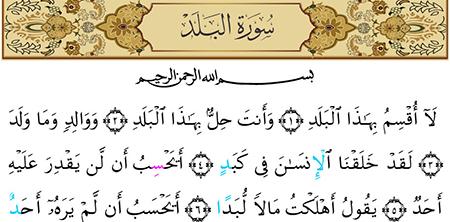 سُورَةُ البَلَدِ
بسم الله الرحمن الرحيم
لَآ أُقْسِمُ بِهَٰذَا ٱلْبَلَدِ ﴿١﴾ وَأَنتَ حِلٌّۢ بِهَٰذَا ٱلْبَلَدِ ﴿٢﴾ وَوَالِدٍ وَمَا وَلَدَ
﴿٣﴾ لَقَدْ خَلَقْنَا ٱلْإِنسَٰنَ فِى كَبَدٍ ﴿٤﴾ أَيَحْسِبُ أَن لَّن يَقْدِرَ عَلَيْهِ
أَحَدٌ ﴿٥﴾ يَقُولُ أَهْلَكْتُ مَالًا لُّبَدًا ﴿٦﴾ أَيَحْسَبُ أَن لَّمْ يَرَهُۥٓ أَحَدٌ